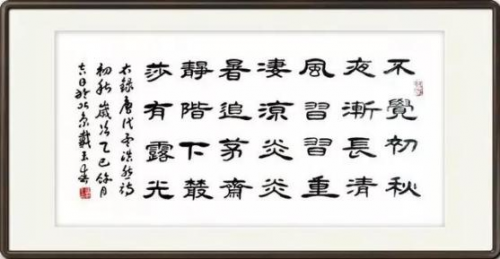 不覺初秋
夜漸長清
風習習重
淒涼炎炎
暑退茅齋
靜階下叢
莎有露光
右錄唐代孟浩然詩
初秋歲次乙巳餘月
日於北京戴玉